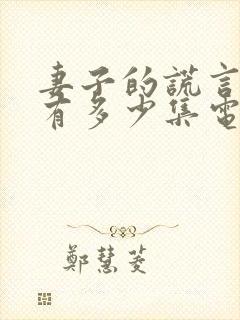 妻子的謊言
有多少集電
鄭慧菱